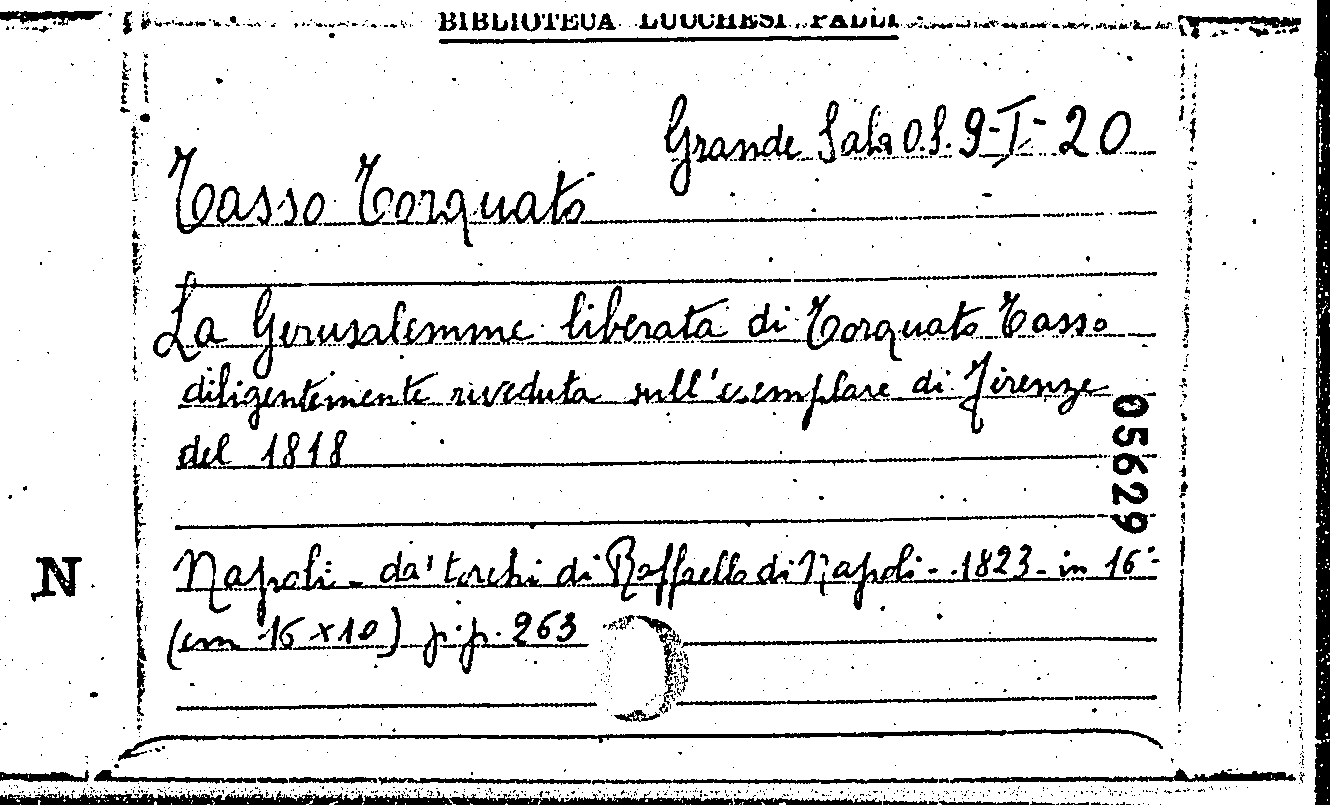 BIBLIOTECA LUCCHESI PALLI
Grande Sala O.S. 9-I-20
Tasso Torquato
La Gerusalemme liberata di Torquato Tasso
diligentemente riveduta sull'esemplare di Firenze
del 1818
05629
Napoli - da' torchi di Raffaello di Napoli - 1823 - in 16°-
N
(cm 16x10) p.p. 263